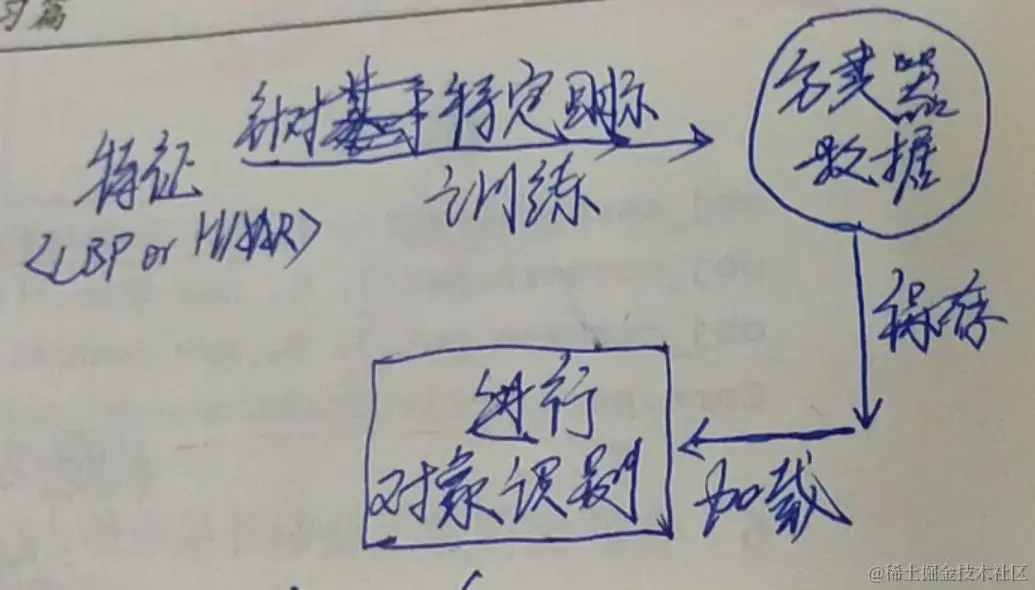 习篇
针对特定目标
特征
训练
<LBP or HAAR>
分类器
数据
保存
进行
对象识别
加载
@稀土掘金技术社区